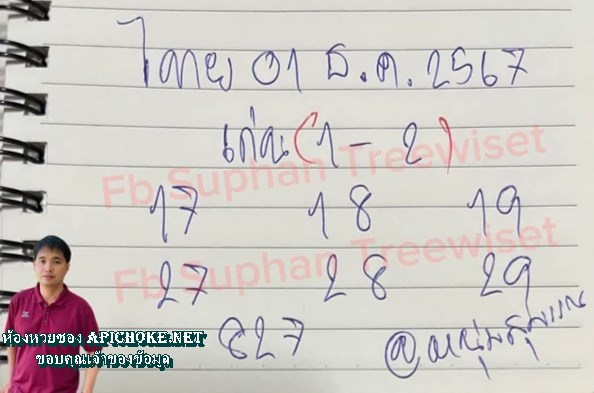 ไทย 01 ธ.ค. 2567
เด่น (1-2)
Fb.Suphan Treewiset
17 18 19
Fb.Suphan Treewiset
27 28 29
827
@หนุ่มสุพรรณ
ห้องหวยซอง APICHOKE.NET
ขอบคุณเจ้าของข้อมูล